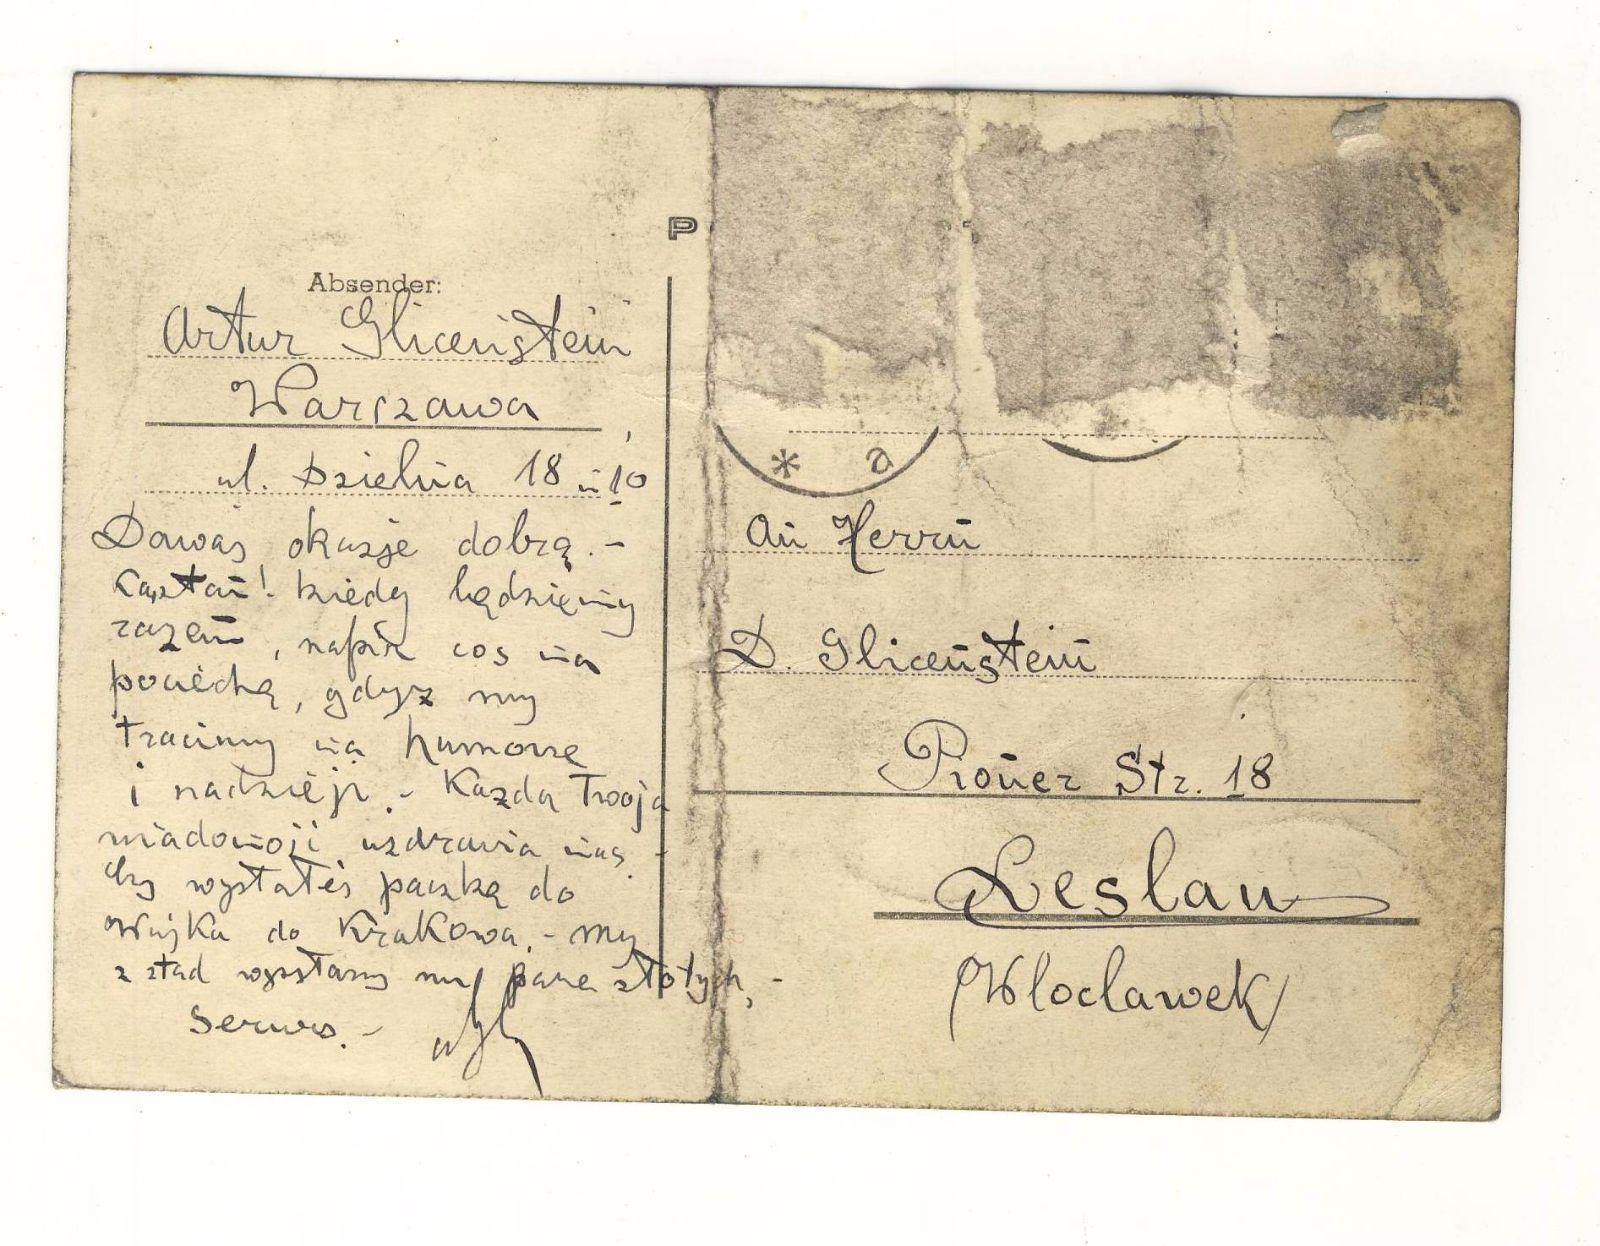 P
Absender:
Artur Glicenstein
Warszawa
ul. Dzielna 18 m 10
Dawaj okazje dobrą. -
kiedy będziemy
razem, napisz coś na
pociechę, gdyż my
tracimy na humorze
i nadzieji. - Każda Twoja
wiadomość uzdrawia nas -
Czy wysłałeś paczkę do
Wujka do Krakowa. - my
z stąd wysłamy mu parę złotych. -
Serwus. -
* a
An Herrn
D. Glicenstein
Pioner Str. 18
Leslau
(Wloclawek)